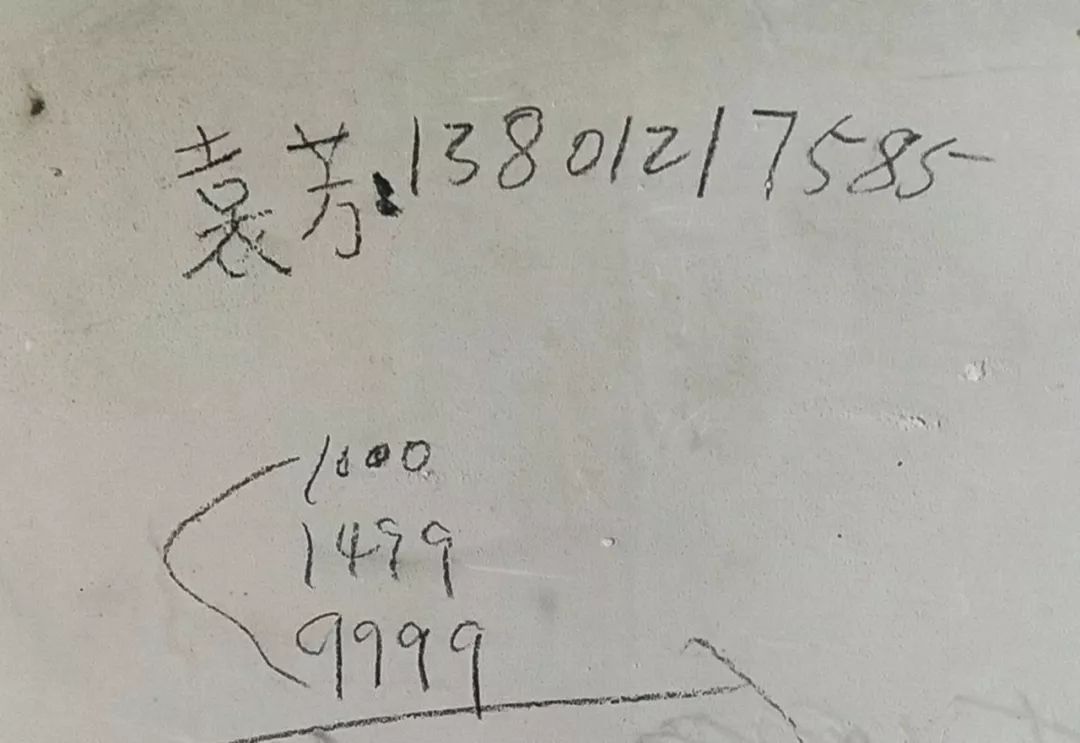 袁芳.13801217585
1000
1499
9999